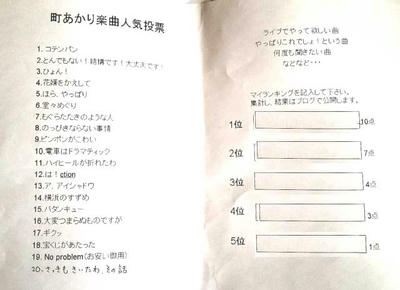 町あかり楽曲人気投票
1. コテンパン
2. とんでもない！結構です！大丈夫です！
3. ひょん！
4. 花嫁をかえして
5. ほら、やっぱり
6. 堂々めぐり
7. もぐらたたきのような人
8. のっぴきならない事情
9. ピンポンがこわい
10. 電車はドラマティック
11. ハイヒールが折れたわ
12. は！ction
13. ア、アイシャドウ
14. 横浜のすずめ
15. バタンキュー
16. 大変つまらぬものですが
17. ギクッ
18. 宝くじがあたった
19. No problem（お安い御用）
20. さっきもきいたわ、その話
ライブでやって欲しい曲
やっぱりこれでしょ！という曲
何度も聞きたい曲
などなど・・・
マイランキングを記入して下さい。
集計し、結果はブログで公開します。
1位 10点
2位 7点
3位 4点
4位 3点
5位 1点